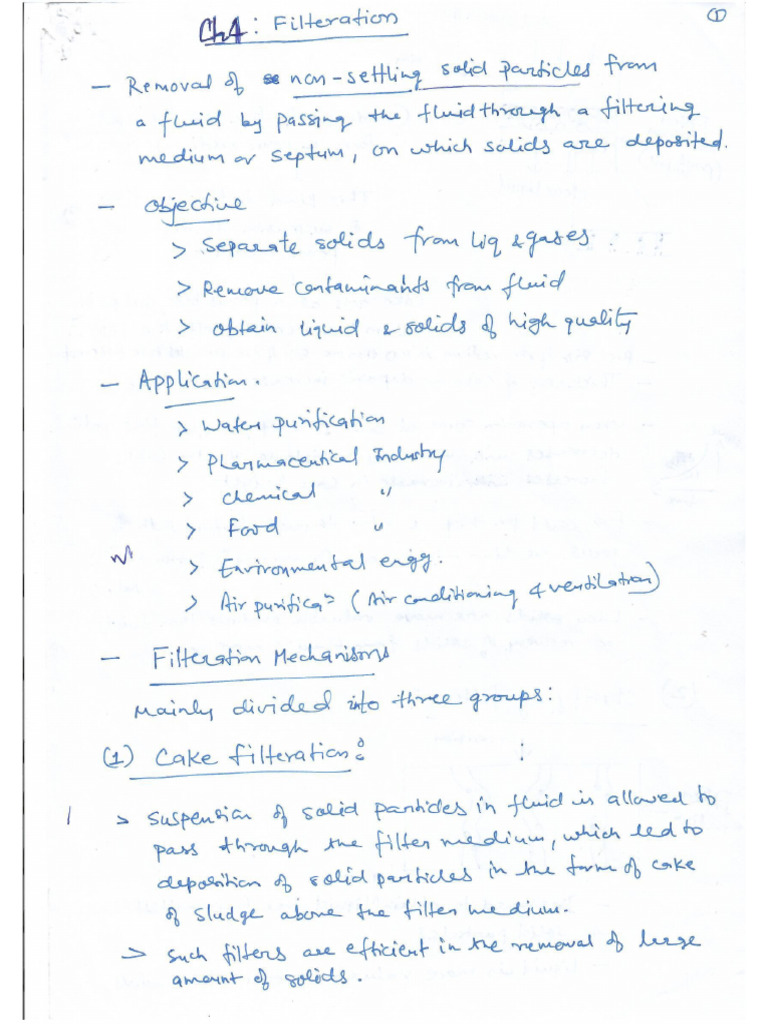 Ch4: Filteration
①
- Removal of non-settling solid particles from
a fluid by passing the fluid through a filtering
medium or septum, on which solids are deposited.
- Objective
> Separate solids from liq & gases
> Remove contaminants from fluid
> obtain liquid & solids of high quality
- Application.
> Water purification
> Pharmaceutical Industry
> Chemical "
> Food "
> Environmental engg.
> Air purifica= (Air conditioning & ventilation)
- Filteration Mechanisms
Mainly divided into three groups:
(1) Cake filteration:
> Suspension of solid particles in fluid is allowed to
pass through the filter medium, which led to
deposition of solid particles in the form of cake
of sludge above the filter medium.
> Such filters are efficient in the removal of large
amount of solids.